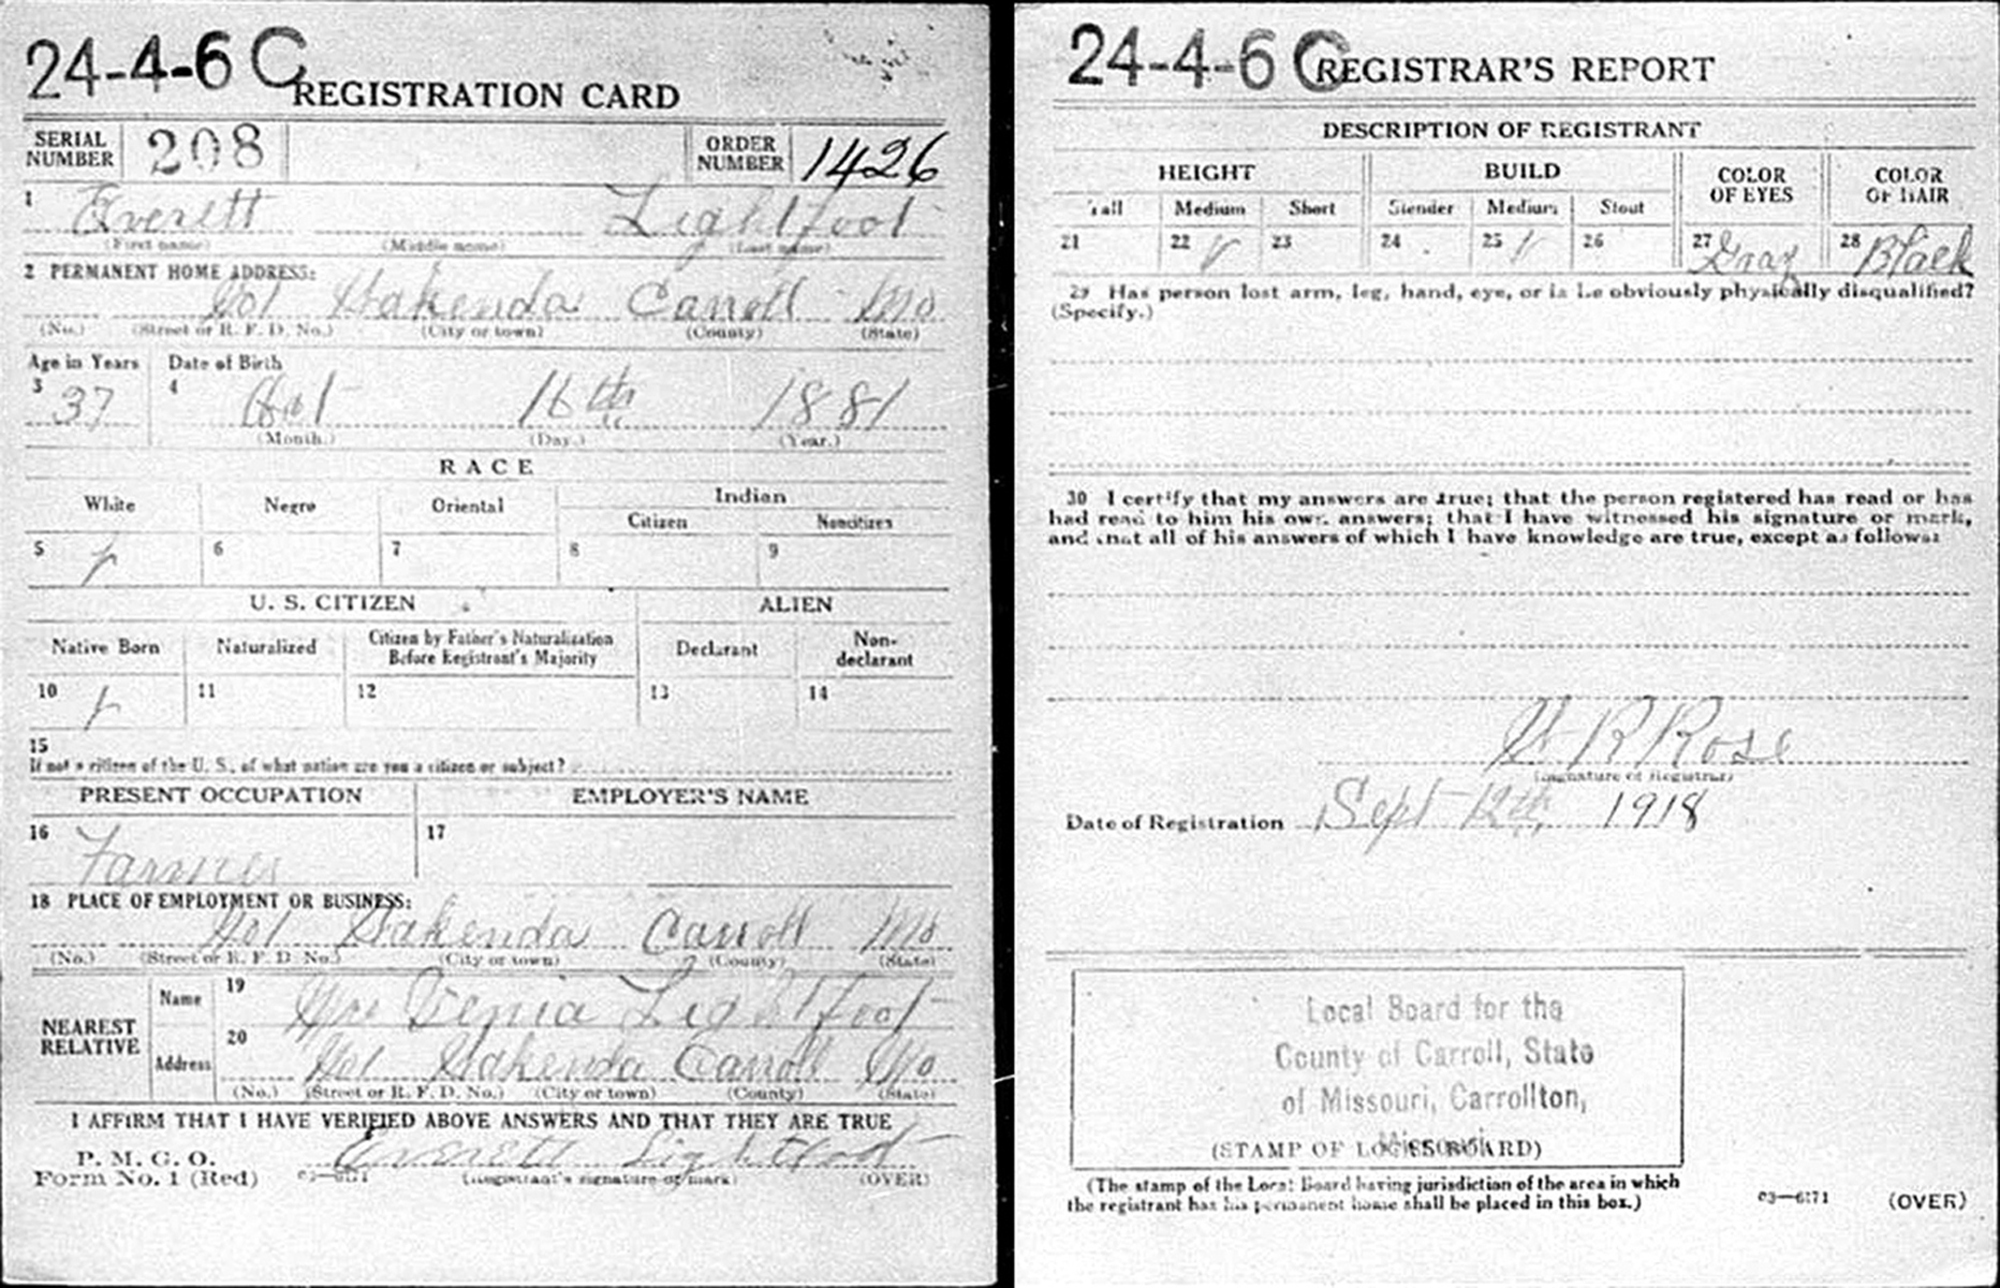 24-4-6 C
REGISTRATION CARD
SERIAL NUMBER 208 ORDER NUMBER 1426
1 Everett Lightfoot
(First name) (Middle name) (Last name)
2 PERMANENT HOME ADDRESS:
Wakenda Carroll Mo
(No.) (Street or R. F. D. No.) (City or town) (County) (State)
Age in Years Date of Birth
3 37 4 16th 1881
(Month.) (Day.) (Year.)
RACE
White Negro Oriental Indian
Citizen Noncitizen
5 6 7 8 9
U. S. CITIZEN ALIEN
Native Born Naturalized Citizen by Father's Naturalization Before Registrant's Majority Declarant Non-declarant
10 11 12 13 14
15
If not a citizen of the U. S., of what nation are you a citizen or subject?
PRESENT OCCUPATION EMPLOYER'S NAME
16 Farmer 17
18 PLACE OF EMPLOYMENT OR BUSINESS:
Wakenda Carroll Mo
(No.) (Street or R. F. D. No.) (City or town) (County) (State)
NEAREST RELATIVE Name 19 Mrs Lightfoot
Address 20 Wakenda Carroll Mo
(No.) (Street or R. F. D. No.) (City or town) (County) (State)
I AFFIRM THAT I HAVE VERIFIED ABOVE ANSWERS AND THAT THEY ARE TRUE
P. M. G. O.
Form No. 1 (Red) Everett Lightfoot
(Registrant's signature or mark) (OVER)
24-4-6 C
REGISTRAR'S REPORT
DESCRIPTION OF REGISTRANT
HEIGHT BUILD COLOR OF EYES COLOR OF HAIR
Tall Medium Short Slender Medium Stout
21 22 23 24 25 26 27 Gray 28 Black
29 Has person lost arm, leg, hand, eye, or is he obviously physically disqualified?
(Specify.)
30 I certify that my answers are true; that the person registered has read or has
had read to him his own answers; that I have witnessed his signature or mark,
and that all of his answers of which I have knowledge are true, except as follows:
R Rose
(Signature of Registrar)
Date of Registration Sept 12th, 1918
Local Board for the
County of Carroll, State
of Missouri, Carrollton,
Missouri
(STAMP OF LOCAL BOARD)
(The stamp of the Local Board having jurisdiction of the area in which
the registrant has his permanent home shall be placed in this box.)
03—6171 (OVER)